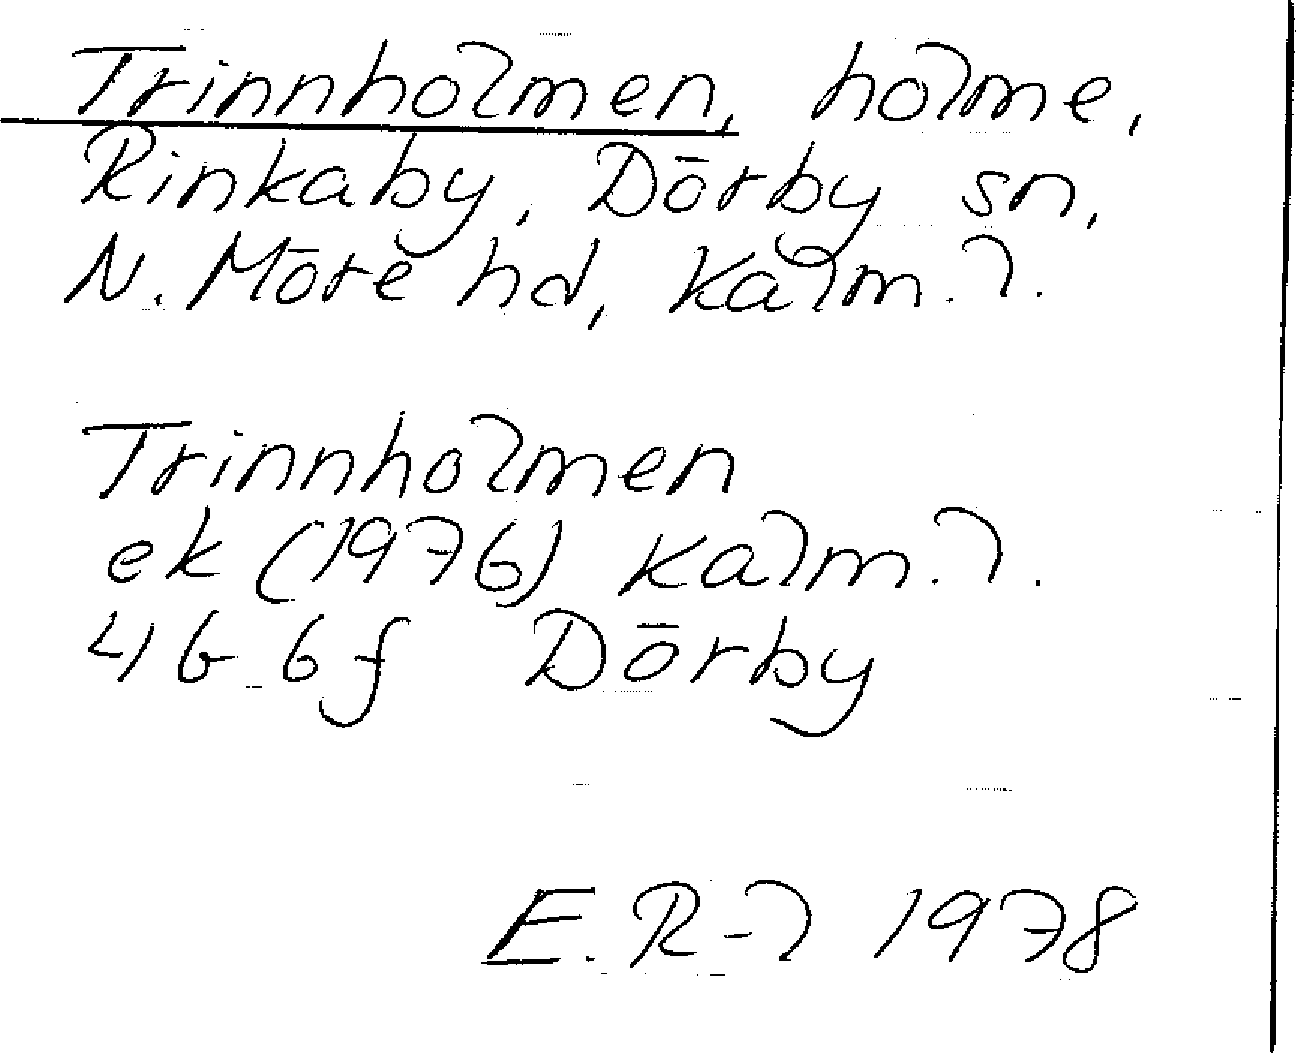 Trinnholmen, holme,
Rinkaby, Dörby sn,
N. Möre hd, Kalm. l.
Trinnholmen
ek (1976) Kalm. l.
4G 6f Dörby
E. R-l 1978